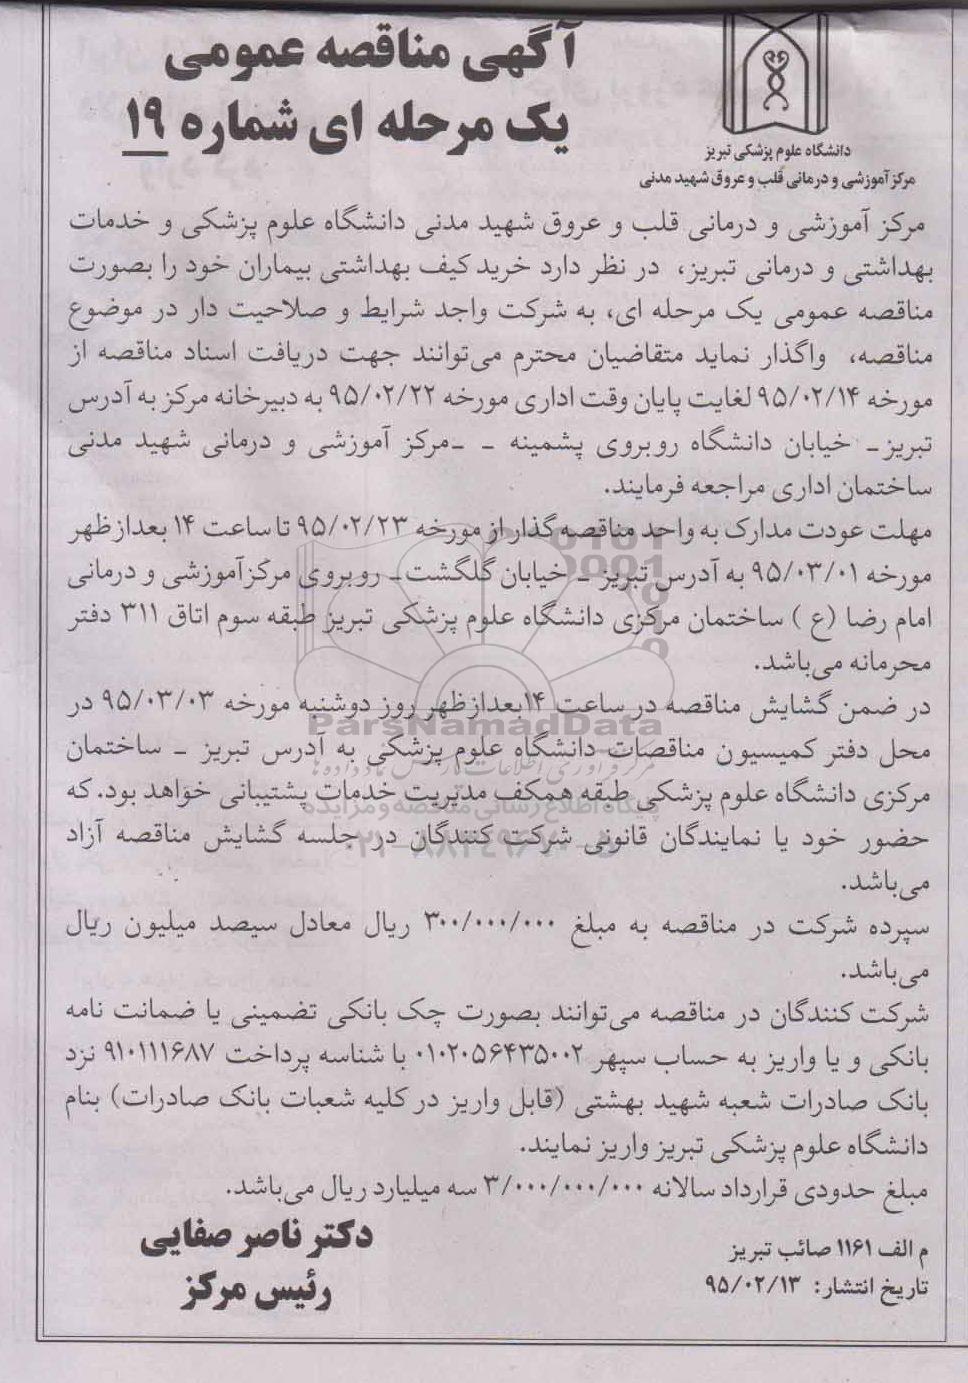 آگهی مناقصه عمومی
یک مرحله ای شماره ۱۹
دانشگاه علوم پزشکی تبریز
مرکز آموزشی و درمانی قلب و عروق شهید مدنی
مرکز آموزشی و درمانی قلب و عروق شهید مدنی دانشگاه علوم پزشکی و خدمات
بهداشتی و درمانی تبریز، در نظر دارد خرید کیف بهداشتی بیماران خود را بصورت
مناقصه عمومی یک مرحله ای، به شرکت واجد شرایط و صلاحیت دار در موضوع
مناقصه، واگذار نماید متقاضیان محترم می‌توانند جهت دریافت اسناد مناقصه از
مورخه ۹۵/۰۲/۱۴ لغایت پایان وقت اداری مورخه ۹۵/۰۲/۲۲ به دبیرخانه مرکز به آدرس
تبریز ـ خیابان دانشگاه روبروی پشمینه ـ ـمرکز آموزشی و درمانی شهید مدنی
ساختمان اداری مراجعه فرمایند.
مهلت عودت مدارک به واحد مناقصه گذار از مورخه ۹۵/۰۲/۲۳ تا ساعت ۱۴ بعدازظهر
مورخه ۹۵/۰۳/۰۱ به آدرس تبریز ـ خیابان گلگشت ـ روبروی مرکز آموزشی و درمانی
امام رضا (ع ) ساختمان مرکزی دانشگاه علوم پزشکی تبریز طبقه سوم اتاق ۳۱۱ دفتر
محرمانه می‌باشد.
در ضمن گشایش مناقصه در ساعت ۱۴بعدازظهر روز دوشنبه مورخه ۹۵/۰۳/۰۳ در
محل دفتر کمیسیون مناقصات دانشگاه علوم پزشکی به آدرس تبریز ـ ساختمان
مرکزی دانشگاه علوم پزشکی طبقه همکف مدیریت خدمات پشتیبانی خواهد بود. که
حضور خود یا نمایندگان قانونی شرکت کنندگان در جلسه گشایش مناقصه آزاد
می‌باشد.
سپرده شرکت در مناقصه به مبلغ ۳۰۰/۰۰۰/۰۰۰ ریال معادل سیصد میلیون ریال
می‌باشد.
شرکت کنندگان در مناقصه می‌توانند بصورت چک بانکی تضمینی یا ضمانت نامه
بانکی و یا واریز به حساب سپهر ۰۱۰۲۰۵۶۴۳۵۰۰۲ با شناسه پرداخت ۹۱۰۱۱۱۶۸۷ نزد
بانک صادرات شعبه شهید بهشتی (قابل واریز در کلیه شعبات بانک صادرات) بنام
دانشگاه علوم پزشکی تبریز واریز نمایند.
مبلغ حدودی قرارداد سالانه ۳/۰۰۰/۰۰۰/۰۰۰ سه میلیارد ریال می‌باشد.
دکتر ناصر صفایی
رئیس مرکز
م الف ۱۱۶۱ صائب تبریز
تاریخ انتشار: ۹۵/۰۲/۱۳
ParsNamadData
پایگاه اطلاع رسانی مناقصه و مزایده